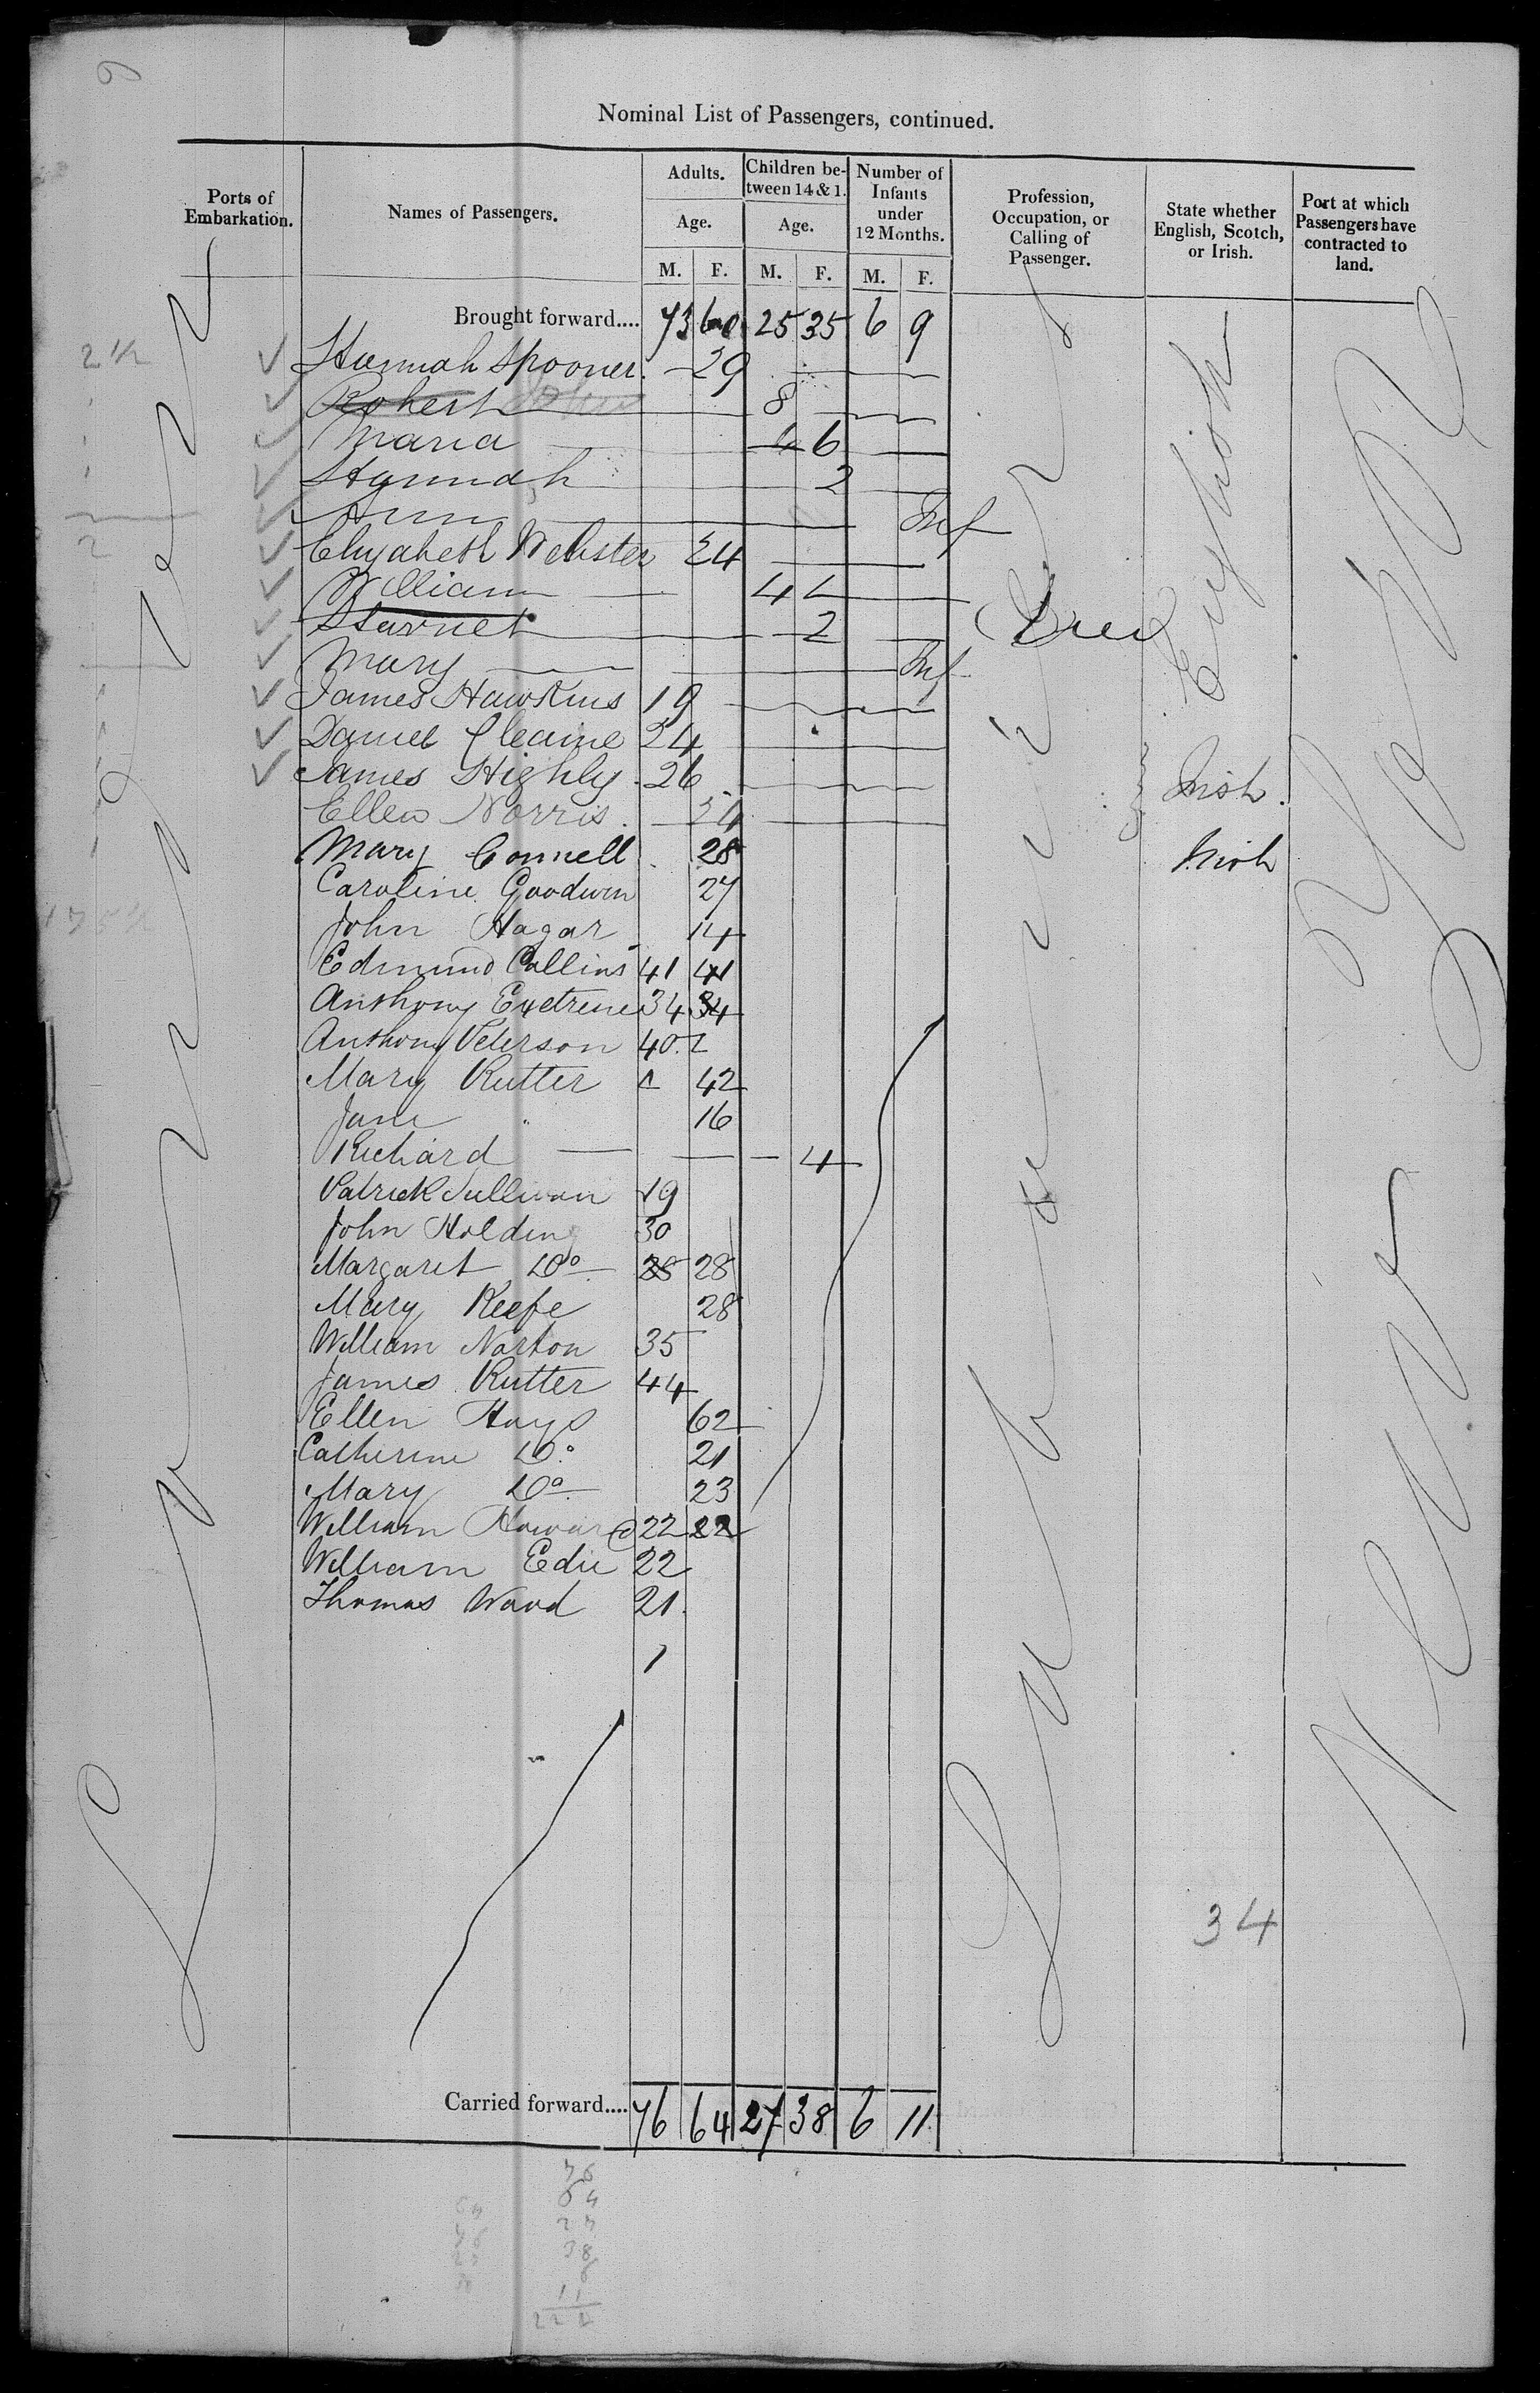 Nominal List of Passengers, continued.
Ports of Embarkation. Names of Passengers. Adults. Age. M. F. Children between 14 & 1. Age. M. F. Number of Infants under 12 Months. M. F. Profession, Occupation, or Calling of Passenger. State whether English, Scotch, or Irish. Port at which Passengers have contracted to land.
Brought forward.... 73 60 25 35 6 9
Hannah Spooner 29
Robert 8
Maria 6
Hannah 2
Ann Inf
Elizabeth Webster 24
William 4
Harriet 2 Died
Mary Inf
James Hawkins 19
Daniel 24
James Highly 26 Irish
Ellen Norris
Mary Connell 28 Irish
Caroline Goodwin 27
John Hagar 14
Edmund Collins 41 41
Anthony 34 34
Anthony Peterson 40
Mary Rutter 42
Jane 16
Richard 4
Patrick Sullivan 19
John Holding 30
Margaret Do 28 28
Mary Keefe 28
William Norton 35
James Rutter 44
Ellen Hays 62
Catherine Do 21
Mary Do 23
William Howard 22 22
William Edie 22
Thomas Wood 21
1
34
Carried forward.... 76 64 27 38 6 11
Liverpool
Labourers
English
New York
76
64
27
38
6
11
222